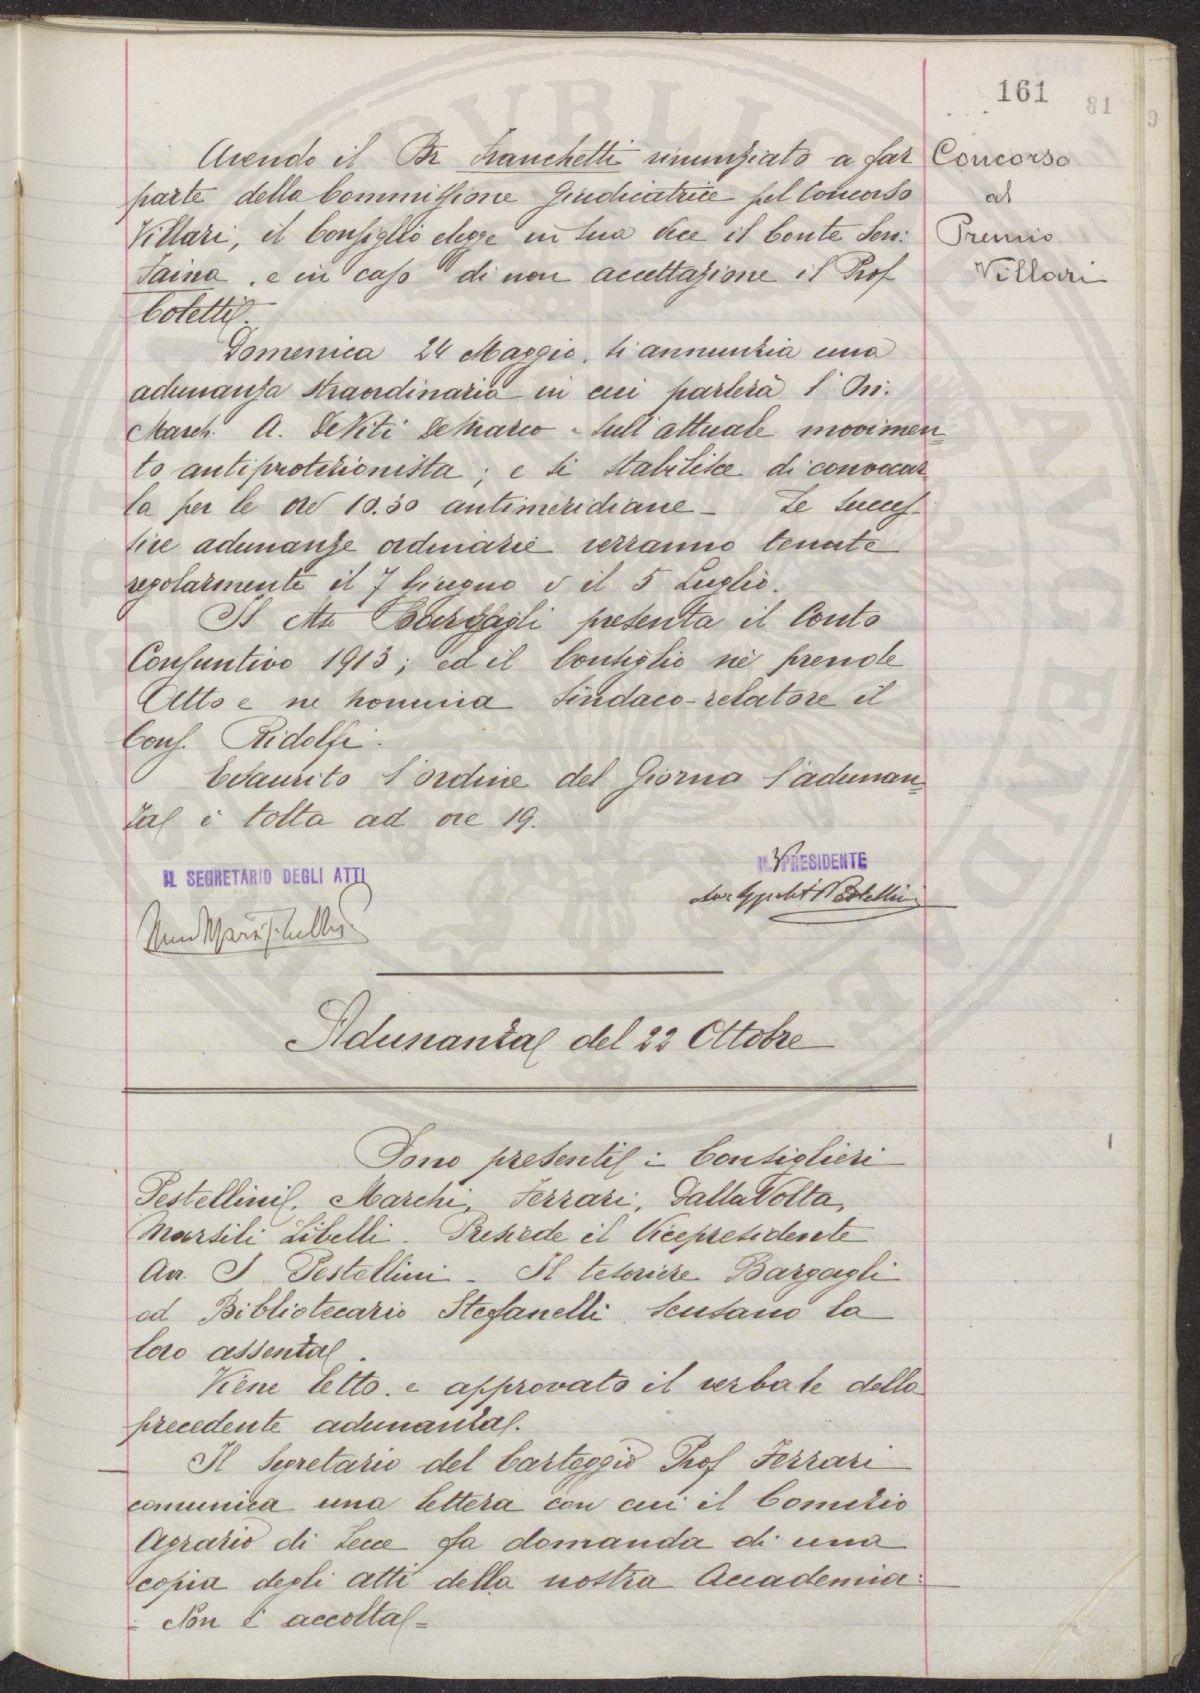 161
81
Avendo il Br Franchetti rinunziato a far
parte della Commissione giudicatrice pel Concorso
Villari, il Consiglio elegge in sua vece il Conte Sen:
Faina, e in caso di non accettazione il Prof
Coletti.
Concorso
al
Premio
Villari
Domenica 24 Maggio, si annunzia una
adunanza straordinaria in cui parlerà l'On.
March. A. De Viti De Marco - sull'attuale movimen=
to antiprotezionista; e si stabilisce di convocar
la per le ore 10.30 antimeridiane - Le succes-
sive adunanze ordinarie verranno tenute
regolarmente il 7 Giugno e il 5 Luglio.
Il Bargagli presenta il Conto
Consuntivo 1913; ed il Consiglio ne prende
Atto e ne nomina Sindaco-relatore il
Cons. Ridolfi.
Esaurito l'ordine del Giorno l'adunan=
za è tolta ad ore 19.
IL SEGRETARIO DEGLI ATTI
IL V PRESIDENTE
Pestellini
Adunanza del 22 Ottobre
Sono presenti i Consiglieri
Pestellini, Marchi, Ferrari, Dalla Volta,
Marsili Libelli. Presiede il Vicepresidente
Av. I. Pestellini - Il tesoriere Bargagli
ed Bibliotecario Stefanelli scusano la
loro assenza.
Viene letto e approvato il verbale della
precedente adunanza.
Il Segretario del Carteggio Prof Ferrari
comunica una lettera con cui il Comizio
Agrario di Lecce fa domanda di una
copia degli atti della nostra Accademia:
= Non è accolta =